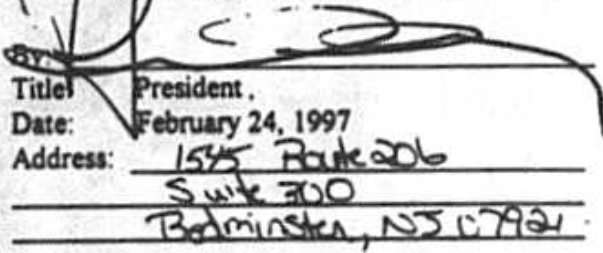 By:
Title: President.
Date: February 24, 1997
Address: 1545 Route 206
Suite 300
Bedminster, NJ 07921